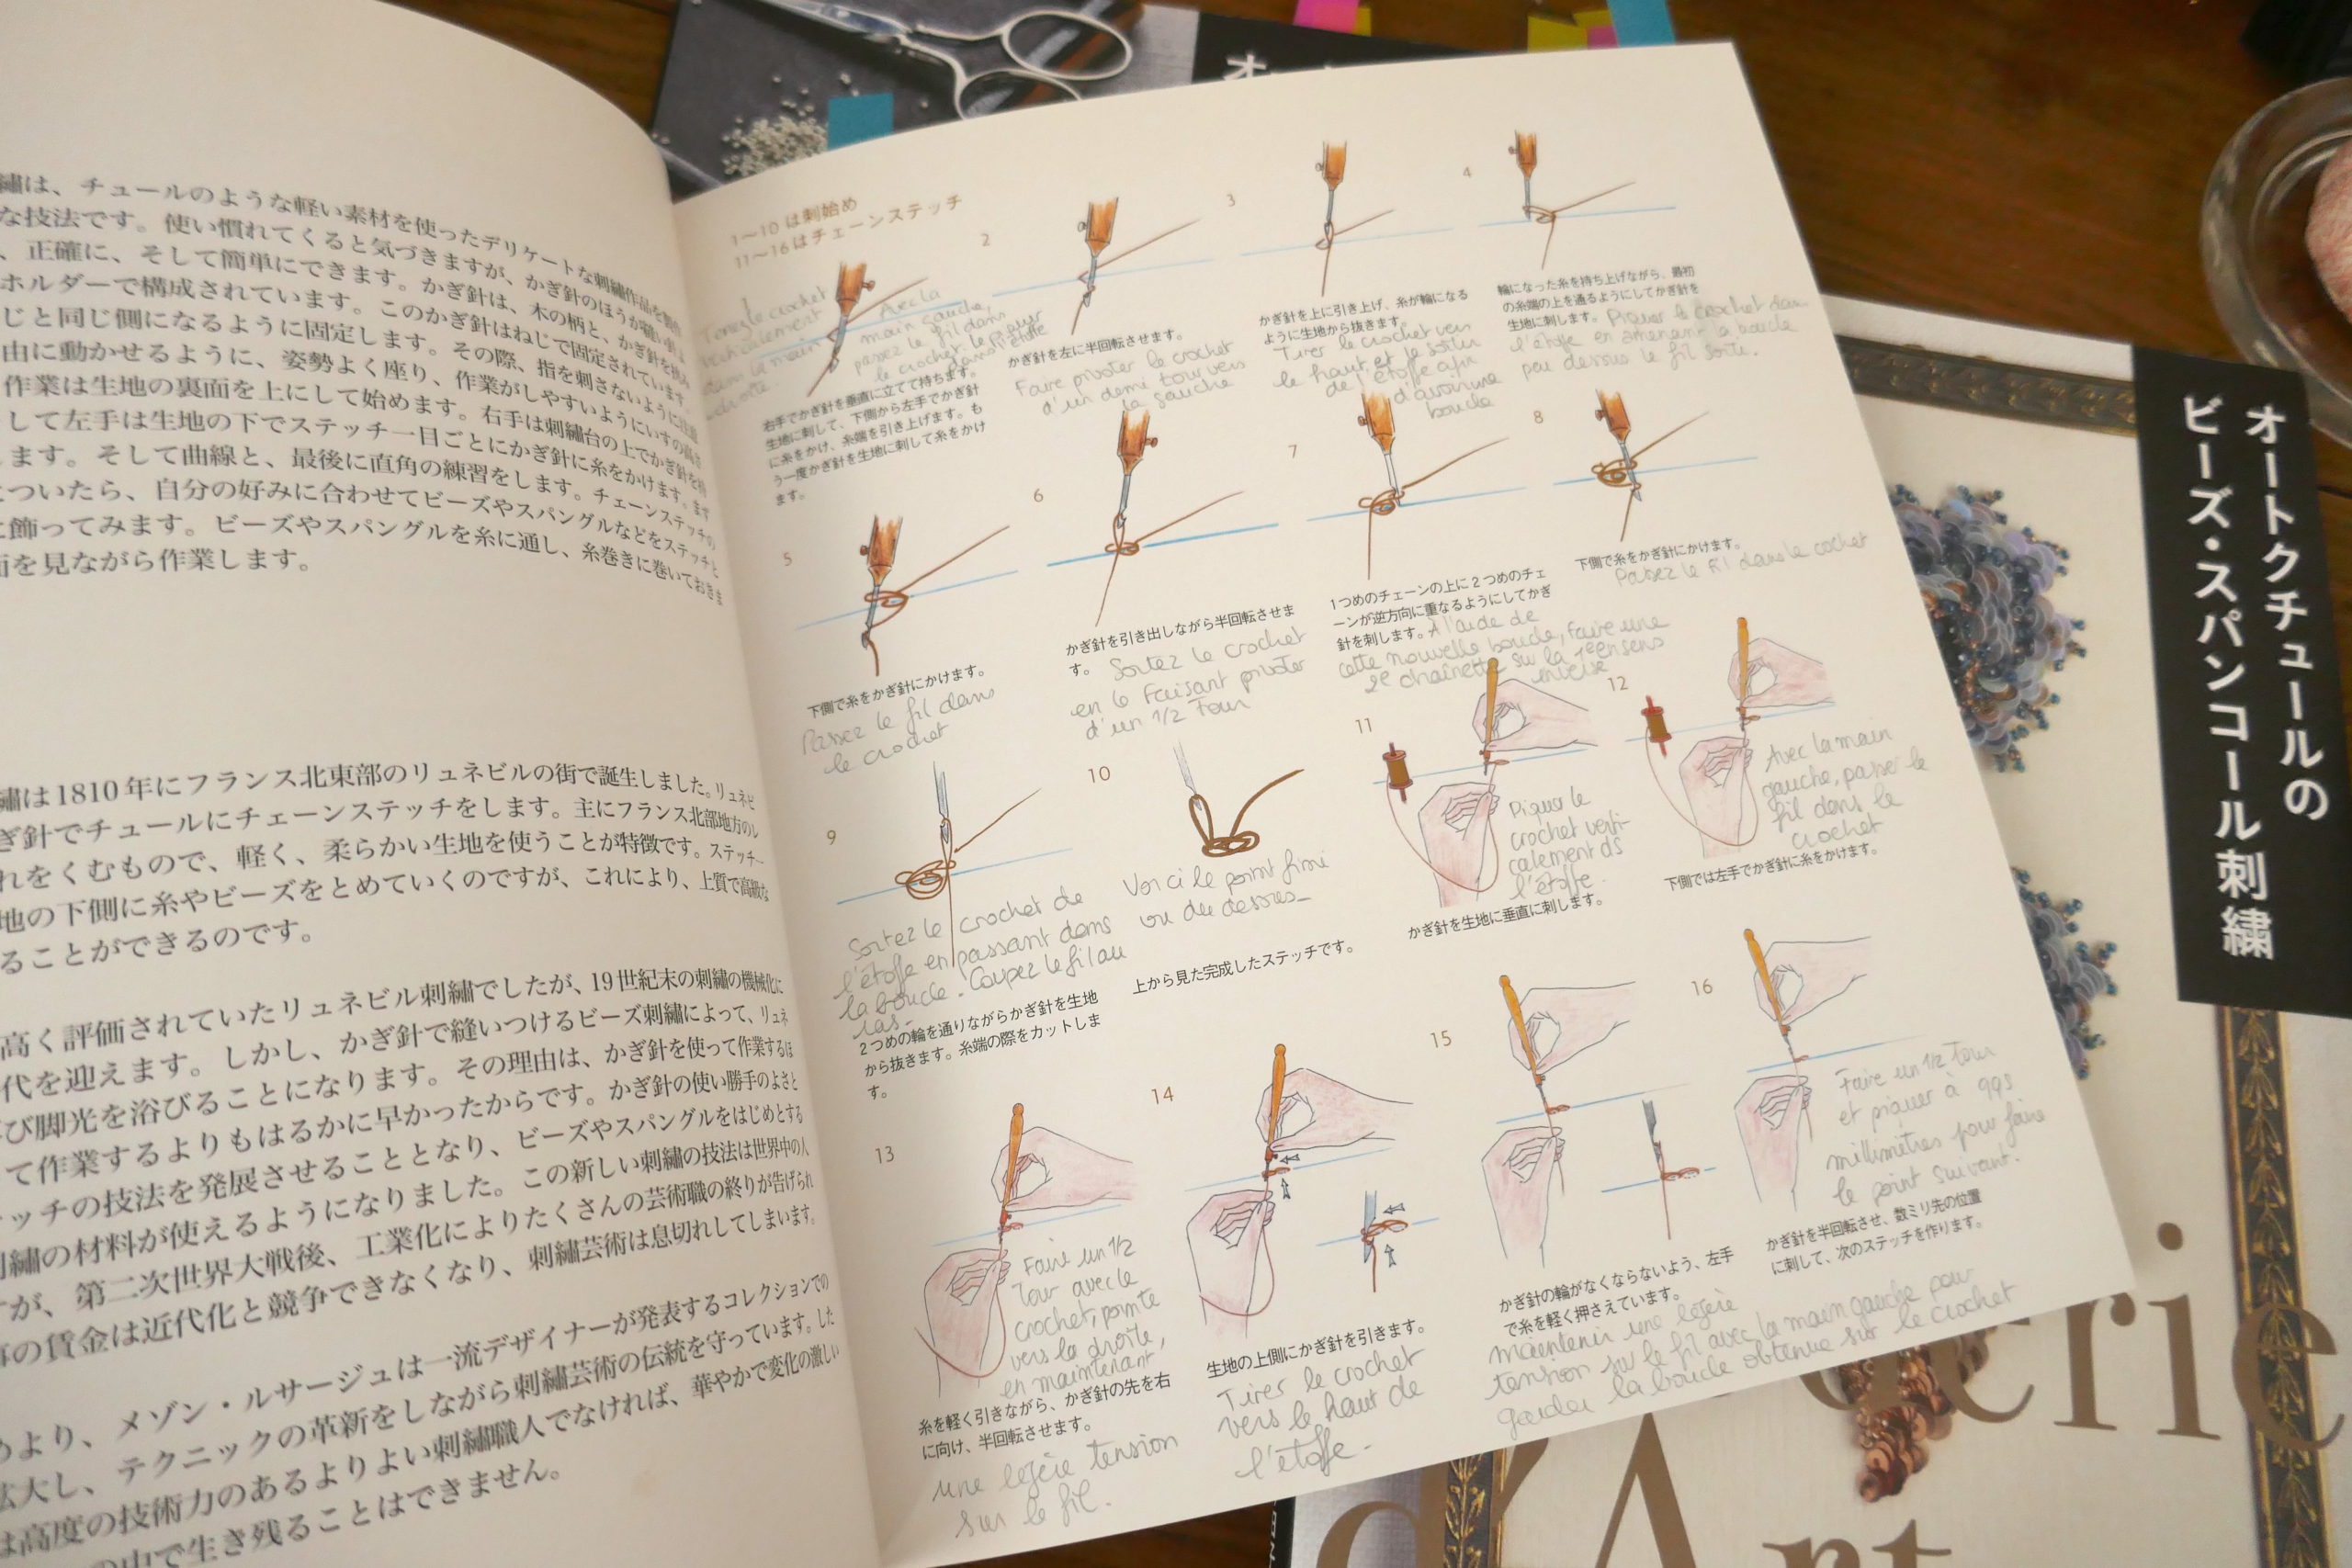 繍は、チュールのような軽い素材を使ったデリケートな刺繍作品を
な技法です。使い慣れてくると気づきますが、かぎ針のほうが
、正確に、そして簡単にできます。かぎ針は、木の柄と、かぎ針を
ホルダーで構成されています。このかぎ針はねじで固定されています。
じと同じ側になるように固定します。その際、指を刺さないように
由に動かせるように、姿勢よく座り、作業がしやすいようにいすの高さ
作業は生地の裏面を上にして始めます。右手は刺繍台の上でかぎ針を
して左手は生地の下でステッチ一目ごとにかぎ針に糸をかけます。まず
ます。そして曲線と、最後に直角の練習をします。チェーンステッチの
についたら、自分の好みに合わせてビーズやスパングルなどをステッチと
に飾ってみます。ビーズやスパングルを糸に通し、糸巻きに巻いておきま
面を見ながら作業します。
繍は1810年にフランス北東部のリュネビルの街で誕生しました。リュネビ
ぎ針でチュールにチェーンステッチをします。主にフランス北部地方のレ
れをくむもので、軽く、柔らかい生地を使うことが特徴です。ステッチ
地の下側に糸やビーズをとめていくのですが、これにより、上質で高級な
ることができるのです。
高く評価されていたリュネビル刺繍でしたが、19世紀末の刺繍の機械化に
代を迎えます。しかし、かぎ針で縫いつけるビーズ刺繍によって、リュネ
び脚光を浴びることになります。その理由は、かぎ針を使って作業するほ
て作業するよりもはるかに早かったからです。かぎ針の使い勝手のよさと
ッチの技法を発展させることとなり、ビーズやスパングルをはじめとする
刺繍の材料が使えるようになりました。この新しい刺繍の技法は世界中の人
が、第二次世界大戦後、工業化によりたくさんの芸術職の終りが告げられ
事の賃金は近代化と競争できなくなり、刺繍芸術は息切れしてしまいます。
より、メゾン・ルサージュは一流デザイナーが発表するコレクションでの
拡大し、テクニックの革新をしながら刺繍芸術の伝統を守っています。した
は高度の技術力のあるよりよい刺繍職人でなければ、華やかで変化の激しい
の中で生き残ることはできません。
1〜10は刺始め
11〜16はチェーンステッチ
Tenez le crochet
verticalement
dans la main
droite
Avec la
main gauche,
passez le fil dans
le crochet
右手でかぎ針を垂直に立てて持ちます。
生地に刺して、下側から左手でかぎ針
に糸をかけ、糸端を引き上げます。も
う一度かぎ針を生地に刺して糸をかけ
ます。
2
かぎ針を左に半回転させます。
Faire pivoter le crochet
d'un demi tour vers
la gauche
3
かぎ針を上に引き上げ、糸が輪になる
ように生地から抜きます。
Tirer le crochet vers
le haut et le sortir
de l'étoffe afin
d'avoir une
boucle
4
輪になった糸を持ち上げながら、最初
の糸端の上を通るようにしてかぎ針を
生地に刺します。 Piquer le crochet dans
l'étoffe en amenant la boucle
peu dessus le fil sorti.
5
下側で糸をかぎ針にかけます。
Passez le fil dans
le crochet
6
かぎ針を引き出しながら半回転させま
す。 Sortez le crochet
en le faisant pivoter
d'un 1/2 tour
7
1つめのチェーンの上に2つめのチェ
ーンが逆方向に重なるようにしてかぎ
針を刺します。 A l'aide de
cette nouvelle boucle, faire une
2e chaînette sur la 1ère en sens
inverse
8
下側で糸をかぎ針にかけます。
Passez le fil dans le cochet
9
Sortez le crochet de
l'étoffe en passant dans
la boucle. Coupez le fil au
ras.
2つめの輪を通りながらかぎ針を生地
から抜きます。糸端の際をカットしま
す。
10
Voici le point fini
vu du dessus
上から見た完成したステッチです。
11
Piquer le
crochet verti-
calement ds
l'étoffe.
かぎ針を生地に垂直に刺します。
12
Avec la main
gauche, passer le
fil dans le
crochet
下側では左手でかぎ針に糸をかけます。
13
Faire un 1/2
tour avec le
crochet, pointe
vers la droite,
en maintenant
糸を軽く引きながら、かぎ針の先を右
に向け、半回転させます。
une légère tension
sur le fil.
14
生地の上側にかぎ針を引きます。
Tirer le crochet
vers le haut de
l'étoffe.
15
かぎ針の輪がなくならないよう、左手
で糸を軽く押さえています。
maintenir une légère
tension sur le fil avec la main gauche pour
garder la boucle obtenue sur le crochet
16
Faire un 1/2 tour
et piquer à qqs
millimètres pour faire
le point suivant.
かぎ針を半回転させ、数ミリ先の位置
に刺して、次のステッチを作ります。
オートクチュールの
ビーズ・スパンコール刺繍
erie
d'Art